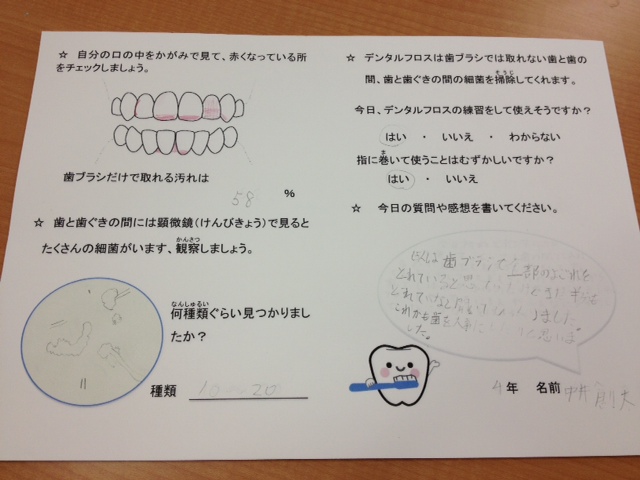 ☆ 自分の口の中をかがみで見て、赤くなっている所
をチェックしましょう。
歯ブラシだけで取れる汚れは
58 %
☆ 歯と歯ぐきの間には顕微鏡(けんびきょう)で見ると
たくさんの細菌がいます、観察しましょう。
かんさつ
なんしゅるい
何種類ぐらい見つかりまし
たか？
種類 20
☆ デンタルフロスは歯ブラシでは取れない歯と歯の
間、歯と歯ぐきの間の細菌を掃除してくれます。
そうじ
今日、デンタルフロスの練習をして使えそうですか？
はい ・ いいえ ・ わからない
指に巻いて使うことはむずかしいですか？
ま
はい ・ いいえ
☆ 今日の質問や感想を書いてください。
歯ブラシで
とれていると
とれていな
これからも歯を
した。
4年 名前